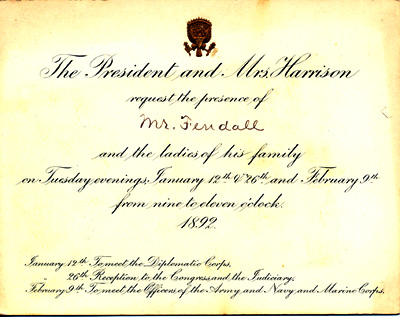 The President and Mrs. Harrison
request the presence of
Mr. Fendall
and the ladies of his family
on Tuesday evenings, January 12th & 26th and February 9th
from nine to eleven o'clock.
1892.
January 12th To meet the Diplomatic Corps.
" 26th Reception to the Congress and the Judiciary.
February 9th To meet the Officers of the Army and Navy and Marine Corps.